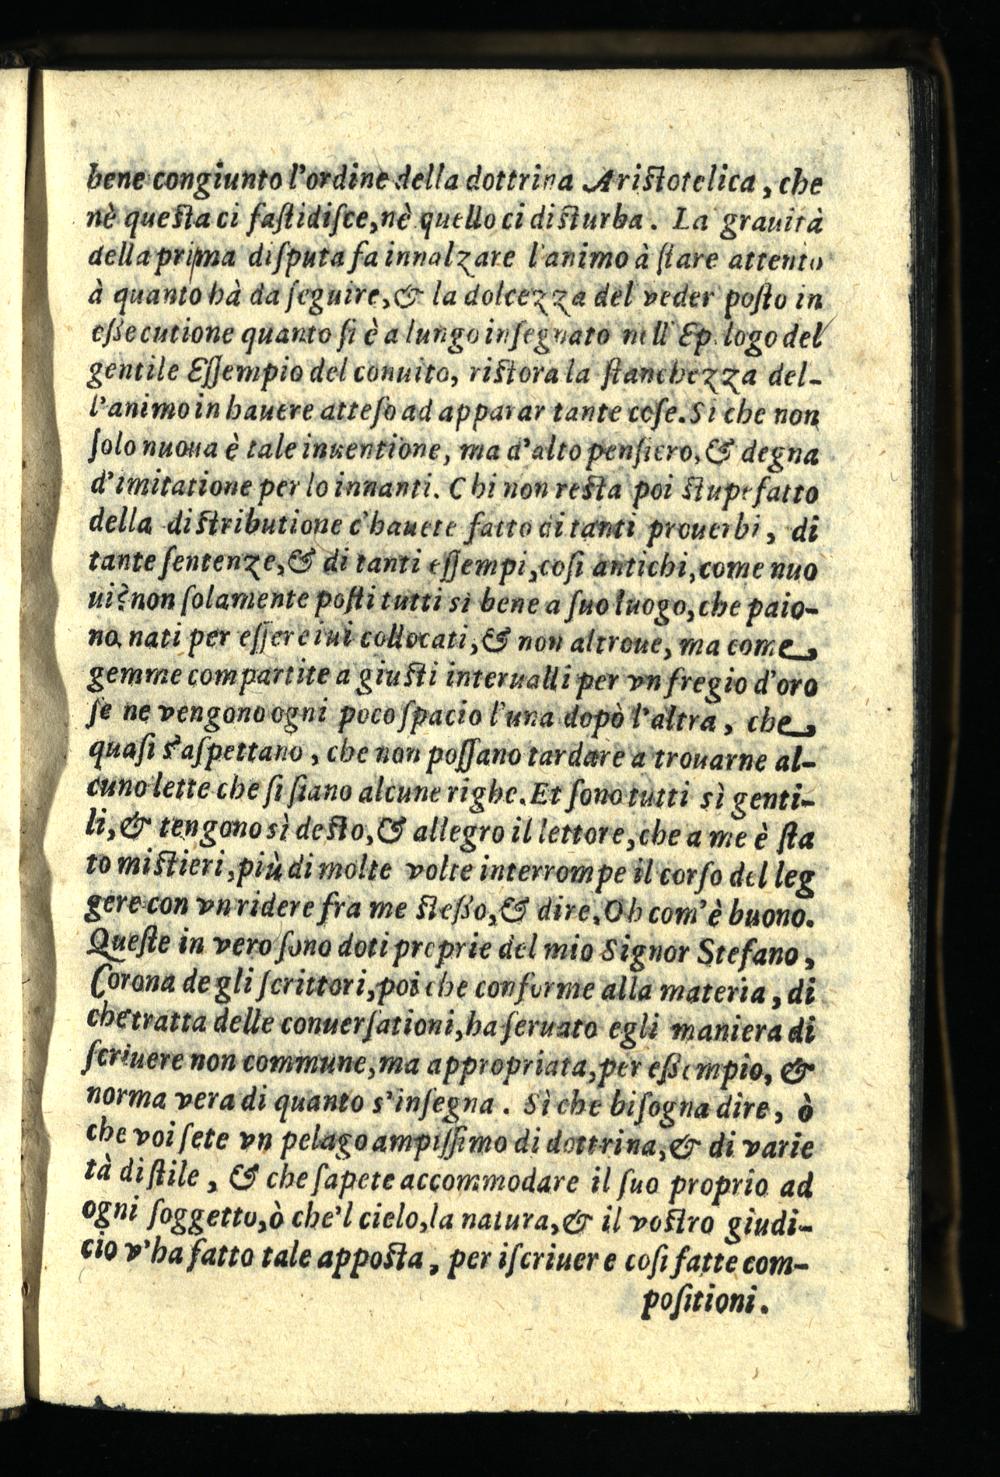 bene congiunto l'ordine della dottrina Aristotelica, che
nè questa ci fastidisce, nè quello ci disturba. La grauità
della prima disputa fa innalzare l'animo à stare attento
à quanto hà da seguire, & la dolcezza del veder posto in
essecutione quanto si è a lungo insegnato nell'Epilogo del
gentile Essempio del conuito, ristora la stanchezza del-
l'animo in hauere atteso ad apparar tante cose. Si che non
solo nuoua è tale inuentione, ma d'alto pensiero, & degna
d'imitatione per lo innanti. Chi non resta poi stupefatto
della distributione c'hauete fatto di tanti prouerbi, di
tante sentenze, & di tanti essempi, cosi antichi, come nuo
ui? non solamente posti tutti sì bene a suo luogo, che paio-
no nati per essere iui collocati, & non altroue, ma come
gemme compartite a giusti interualli per vn fregio d'oro
se ne vengono ogni poco spacio l'una dopò l'altra, che
quasi s'aspettano, che non possano tardare a trouarne al-
cuno lette che si siano alcune righe. Et sono tutti sì genti-
li, & tengono sì desto, & allegro il lettore, che a me è sta
to mistieri, più di molte volte interrompe il corso del leg
gere con vn ridere fra me stesso, & dire, Oh com'è buono.
Queste in vero sono doti proprie del mio Signor Stefano,
Corona degli scrittori, poi che conforme alla materia, di
che tratta delle conuersationi, ha seruato egli maniera di
scriuere non commune, ma appropriata, per essempio, &
norma vera di quanto s'insegna. Sì che bisogna dire, ò
che voi sete vn pelago ampissimo di dottrina, & di varie
tà di stile, & che sapete accommodare il suo proprio ad
ogni soggetto, ò che'l cielo, la natura, & il vostro giudi-
cio v'ha fatto tale apposta, per iscriuere cosi fatte com-
positioni.